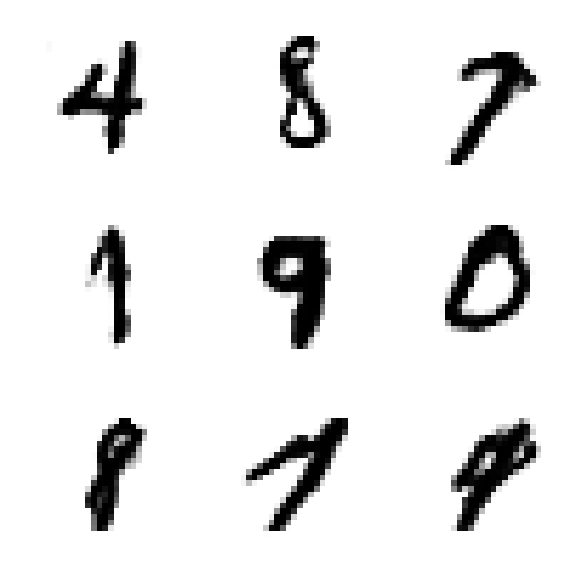 4 8 7
1 9 0
8 7